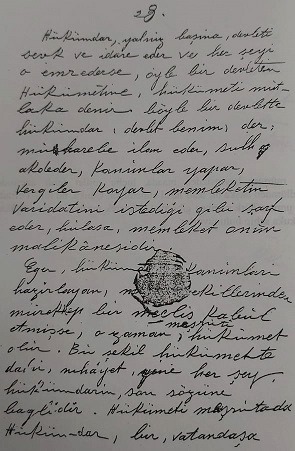 28.
Hükümdar, yalnız başına, devleti
sevk ve idare eder ve her şeyi
o emrederse, öyle bir devletin
Hükümetine, hükümeti mut-
laka denir. böyle bir devlette
hükümdar, devlet benim, der;
muharebe ilan eder, sulh
akdeder, kanunlar yapar,
vergiler koyar, memleketin
varidatını istediği gibi sarf
eder, hülasa, memleket onun
malikânesidir.
Eğer, hüküm kanunları
hazırlayan, m ekillerinden
mürekkep bir meclis kabul
etmişse, o zaman, meşruta hükümet
olur. Bir şekil hükümette
dahi, nihayet, yine her şey,
hükümdarın, son sözüne
bağlıdır. Hükümeti meşrutada
Hükümdar, bir, vatandaşa